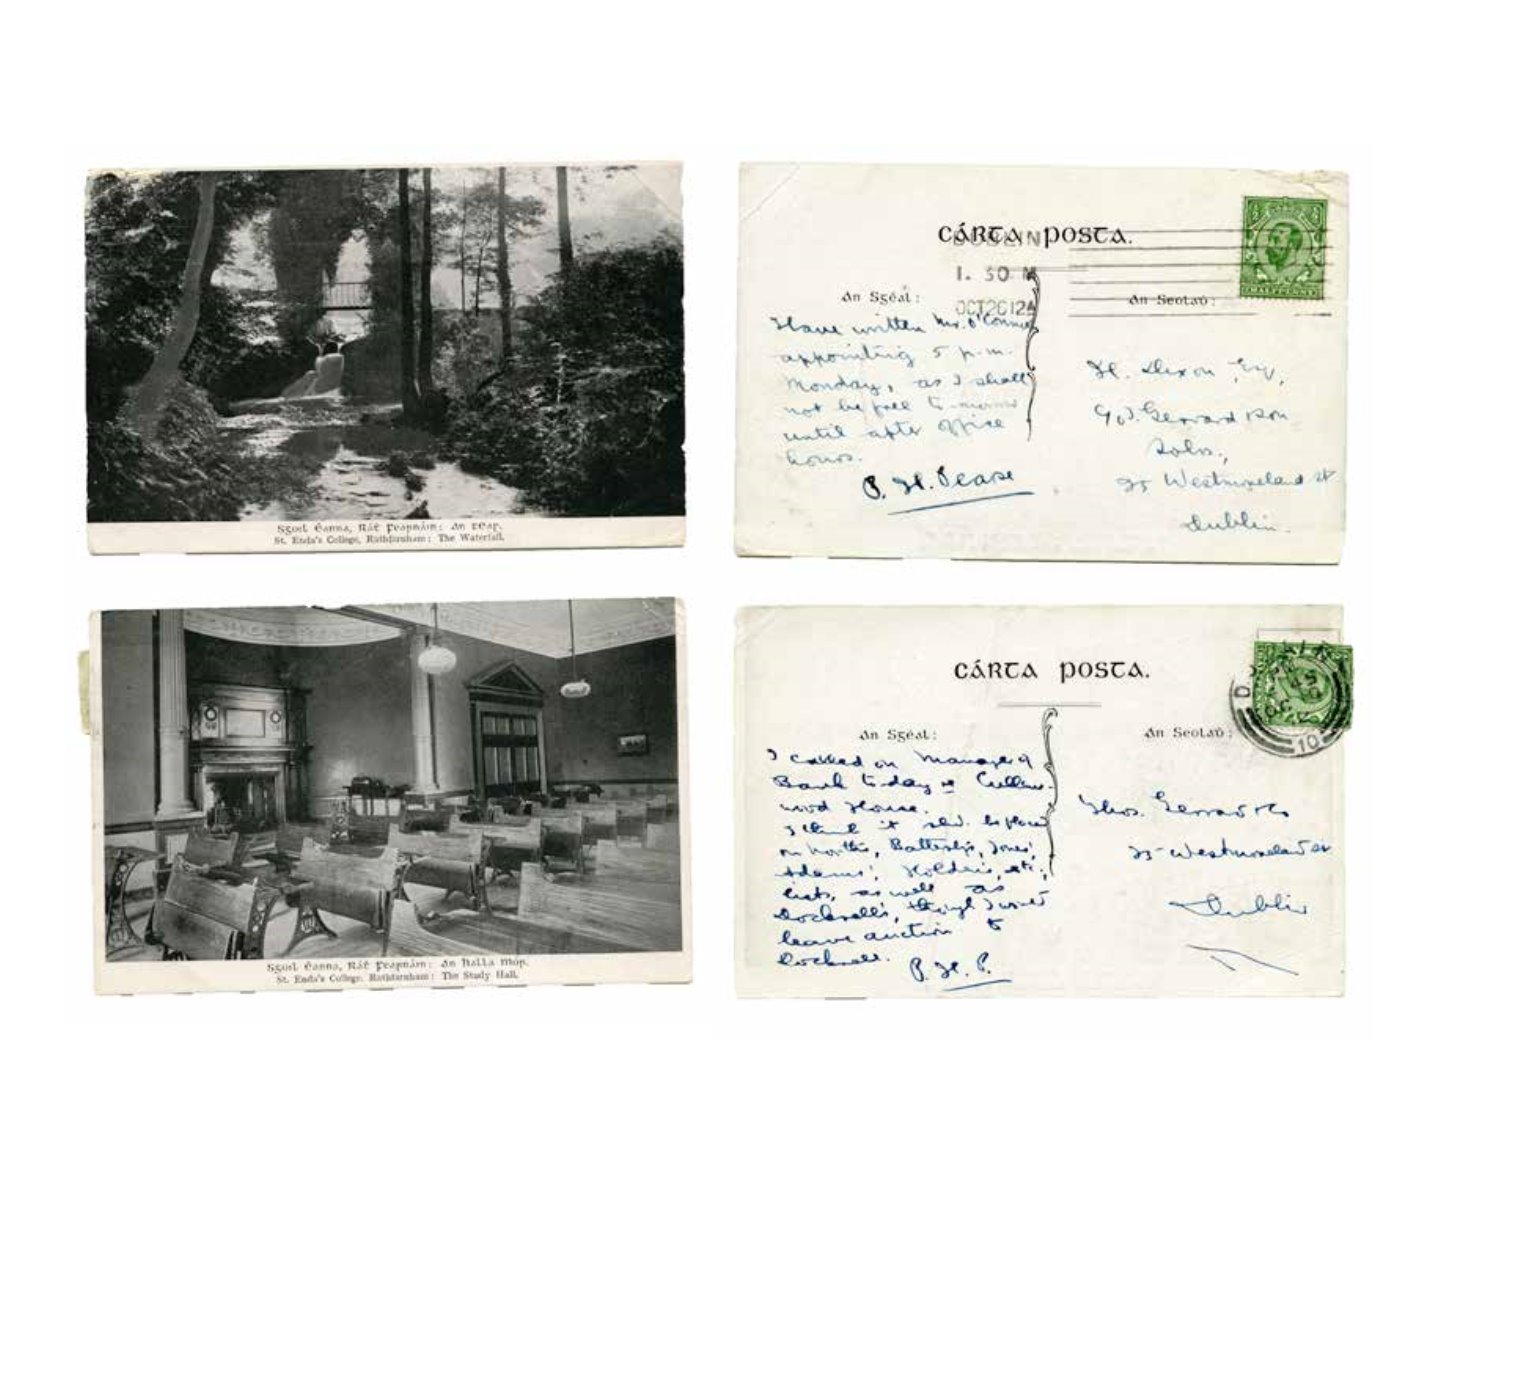 Sgoil Éanna, Ráṫ Fearnáin: An tEas.
St. Enda's College, Rathfarnham: The Waterfall.
CÁRTA POSTA.
DUBLIN
1. 30 M
OCT 26 12
An Sgéal:
An Seolaḋ:
Have written Mr. O'Connor
appointing 5 p.m.
Monday, as I shall
not be free
until after office
hours.
P. H. Pearse
HALFPENNY
H. Dixon Esq,
Gerrard & Son
Solrs.,
25 Westmoreland St
Dublin.
Sgoil Éanna, Ráṫ Fearnáin: An Halla Mór.
St. Enda's College, Rathfarnham: The Study Hall.
CÁRTA POSTA.
An Sgéal:
An Seolaḋ:
I called on Manager of
Bank today re Cullens-
wood House.
I think it shd. be placed
on North's, Battersby's, Jones',
Adams', Holden's, etc.,
lists, as well as
Dockrell's, though I want
leave auction to
Dockrell.
P. H. P.
10
Thos. Gerrard & Co
25 Westmoreland St
Dublin